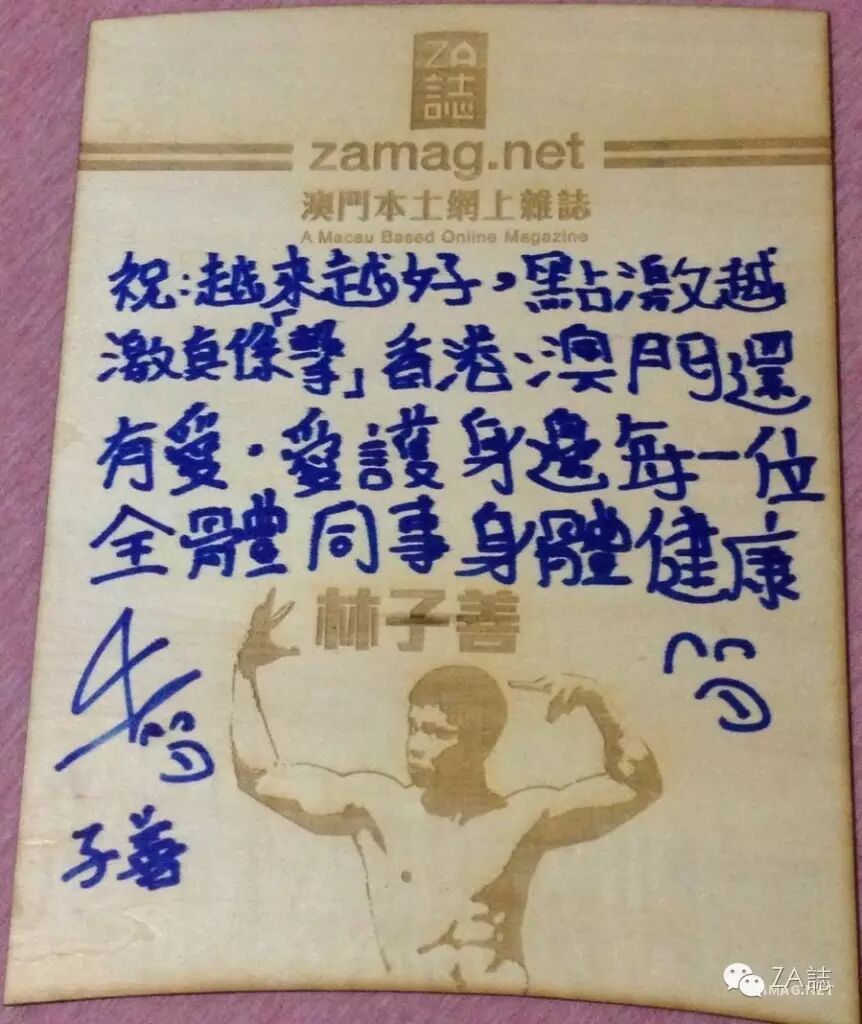 ZA
誌
zamag.net
澳門本土網上雜誌
A Macau Based Online Magazine
祝:越来越好,點激越
激真係「掔」香港、澳門還
有愛.愛護身邊每一位
全體同事身體健康
林子善
子善
ZA誌
ZAMAG.NET